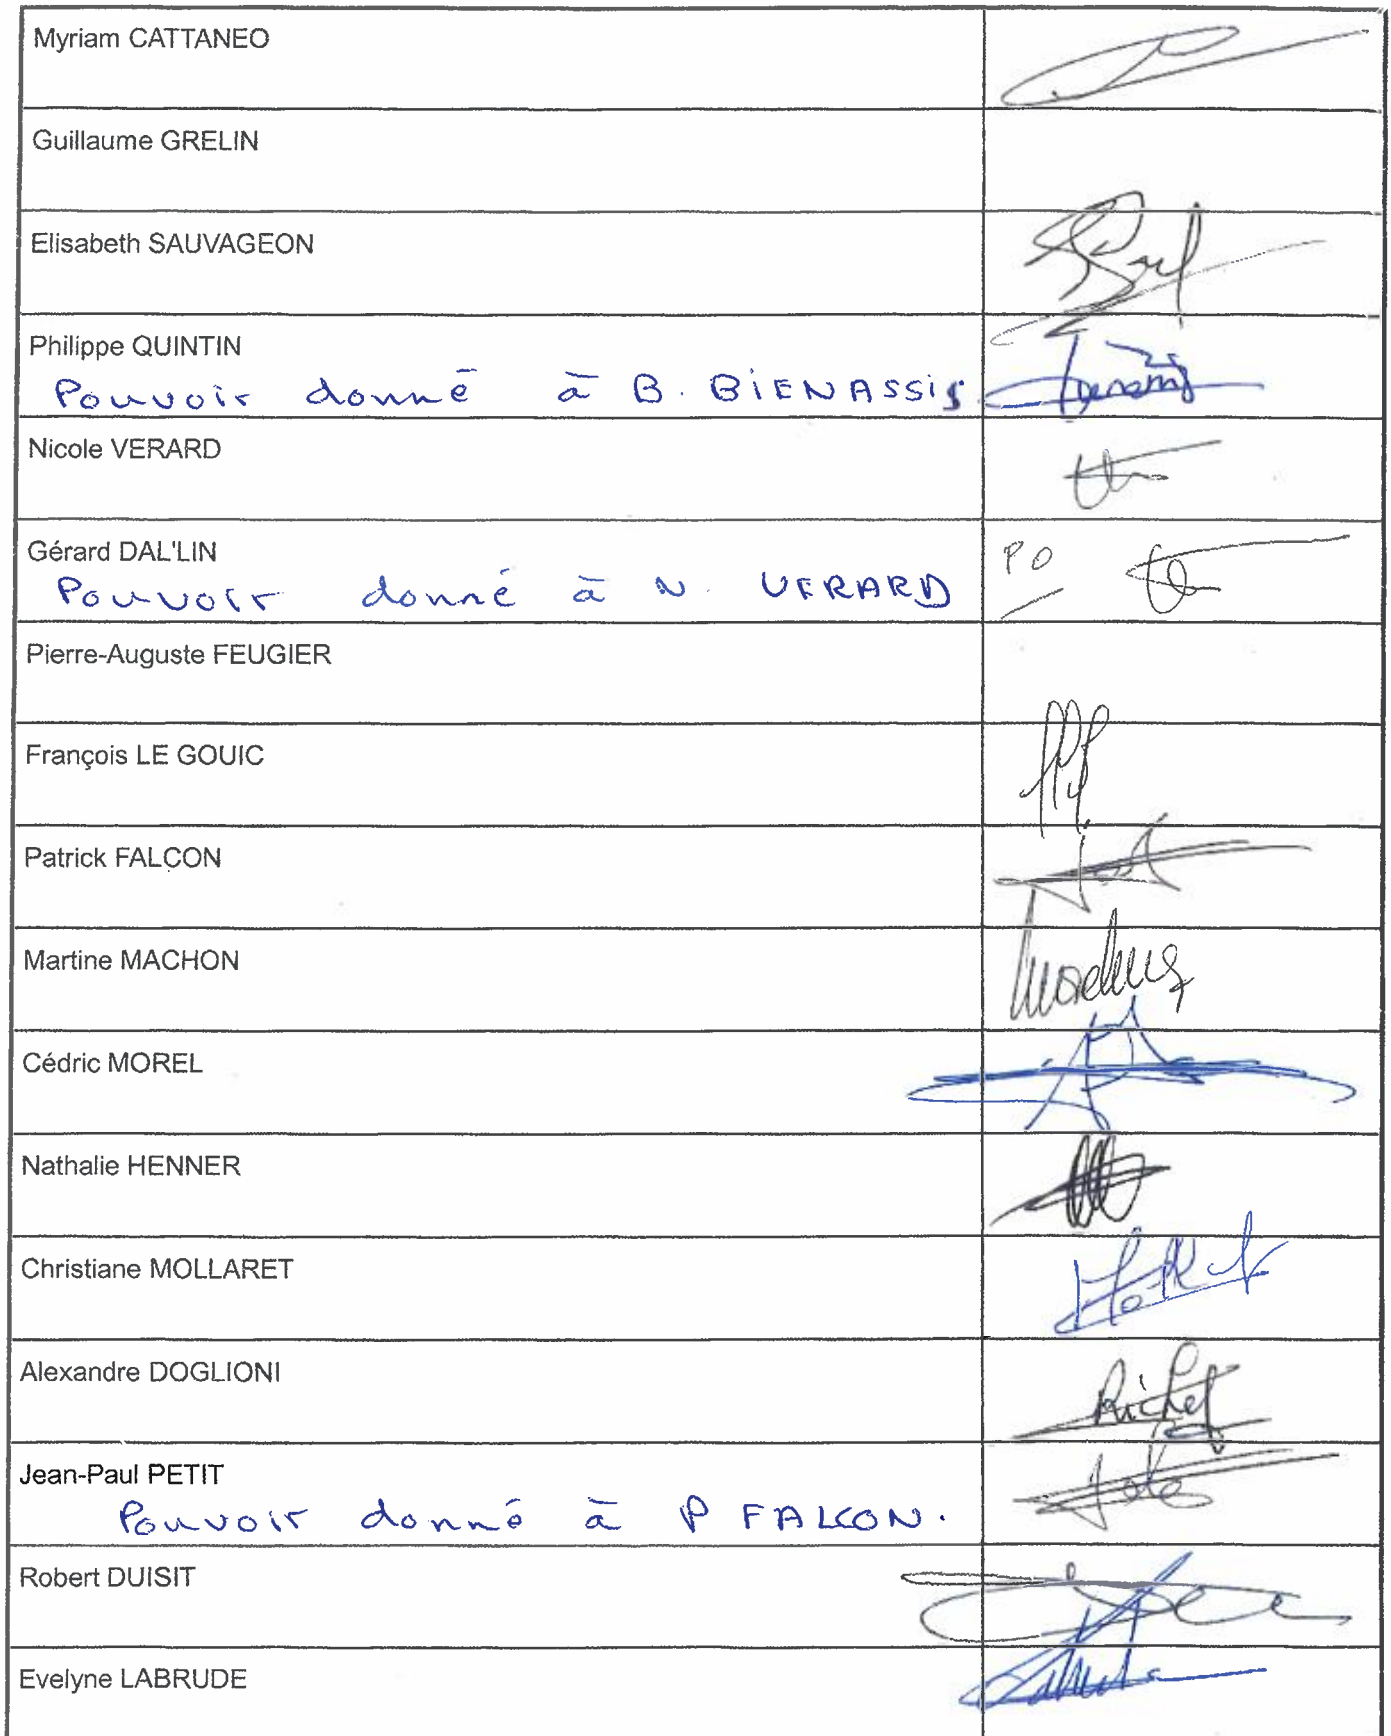 Myriam CATTANEO
Guillaume GRELIN
Elisabeth SAUVAGEON
Philippe QUINTIN
Pouvoir donné à B. BIENASSIS
Nicole VERARD
Gérard DAL'LIN
Pouvoir donné à N. VERARD
PO
Pierre-Auguste FEUGIER
François LE GOUIC
Patrick FALCON
Martine MACHON
Cédric MOREL
Nathalie HENNER
Christiane MOLLARET
Alexandre DOGLIONI
Richel
Jean-Paul PETIT
Pouvoir donné à P FALCON.
Robert DUISIT
Evelyne LABRUDE